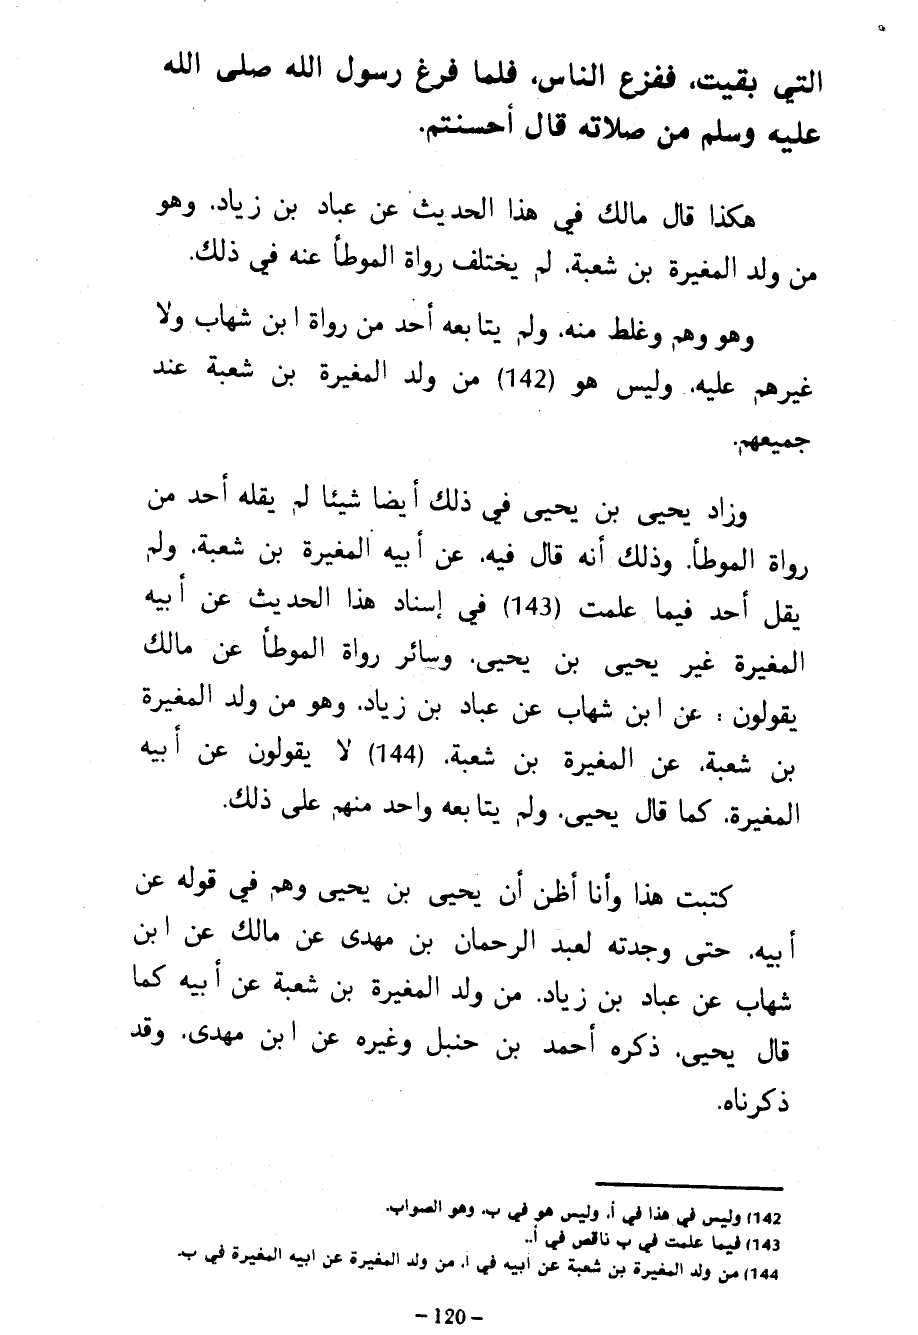 التي بقيت، ففزع الناس، فلما فرغ رسول الله صلى الله
عليه وسلم من صلاته قال أحسنتم.
هكذا قال مالك في هذا الحديث عن عباد بن زياد، وهو
من ولد المغيرة بن شعبة، لم يختلف رواة الموطأ عنه في ذلك.
وهو وهم وغلط منه، ولم يتابعه أحد من رواة ابن شهاب ولا
غيرهم عليه، وليس هو (142) من ولد المغيرة بن شعبة عند
جميعهم.
وزاد يحيى بن يحيى في ذلك أيضا شيئا لم يقله أحد من
رواة الموطأ، وذلك أنه قال فيه، عن أبيه المغيرة بن شعبة، ولم
يقل أحد فيما علمت (143) في إسناد هذا الحديث عن أبيه
المغيرة غير يحيى بن يحيى، وسائر رواة الموطأ عن مالك
يقولون : عن ابن شهاب عن عباد بن زياد، وهو من ولد المغيرة
بن شعبة، عن المغيرة بن شعبة، (144) لا يقولون عن أبيه
المغيرة، كما قال يحيى، ولم يتابعه واحد منهم على ذلك.
كتبت هذا وأنا أظن أن يحيى بن يحيى وهم في قوله عن
أبيه، حتى وجدته لعبد الرحمان بن مهدى عن مالك عن ابن
شهاب عن عباد بن زياد، من ولد المغيرة بن شعبة عن أبيه كما
قال يحيى، ذكره أحمد بن حنبل وغيره عن ابن مهدى، وقد
ذكرناه.
142) وليس في هذا في أ، وليس هو في ب، وهو الصواب.
143) فيما علمت في ب ناقص في أ..
144) من ولد المغيرة بن شعبة عن أبيه في أ، من ولد المغيرة عن ابيه المغيرة في ب.
– 120 –